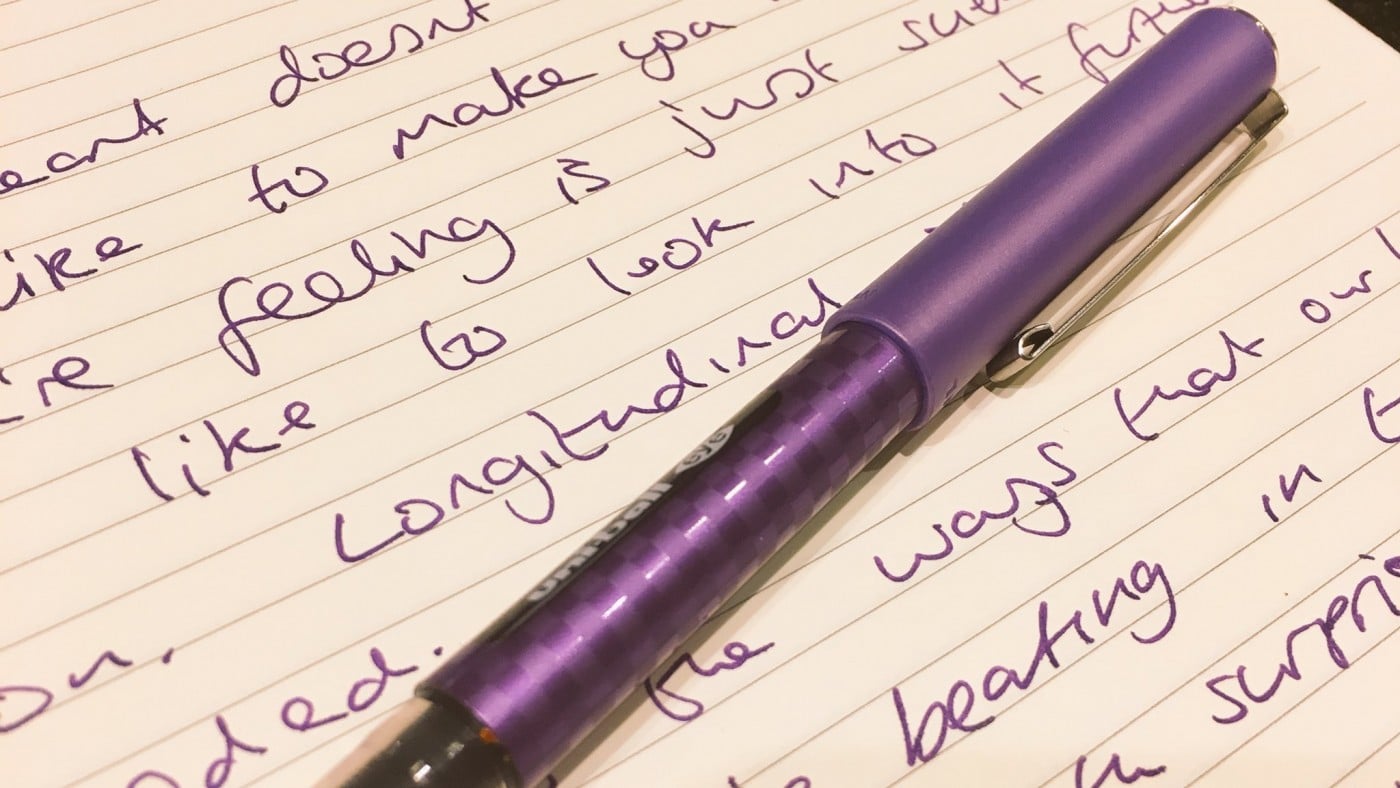 eant doesnt
ike to make you
ire feeling is just
like to look into it
on. Longitudinal
ded.
the ways that our
beating in
surpri
uni-ball eye